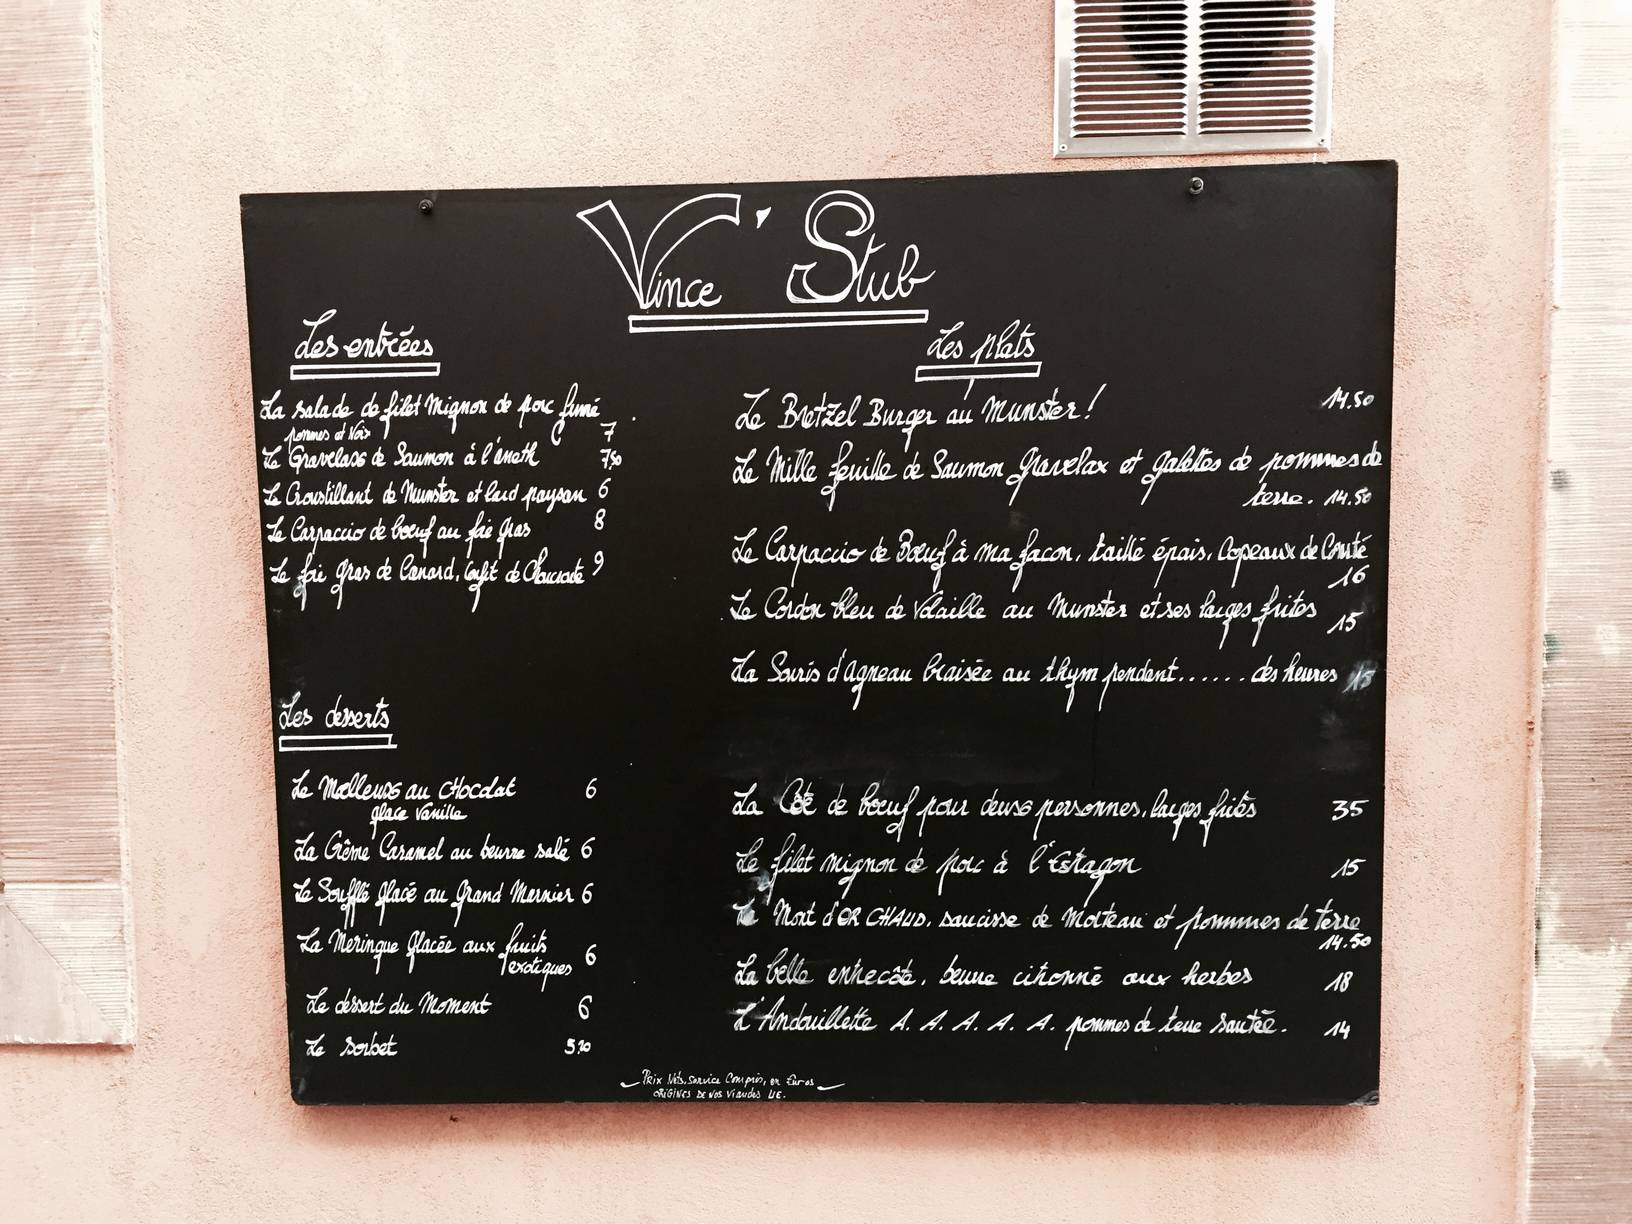 Vince' Stub
Les entrées
La salade de filet mignon de porc fumé
pommes et Noix 7
Le Gravelax de Saumon à l'aneth 7,50
Le Croustillant de Munster et lard paysan 6
Le Carpaccio de bœuf au foie gras 8
Le foie gras de Canard, confit de Choucroute 9
Les desserts
Le Moelleux au CHocolat 6
glace Vanille
La Crème Caramel au beurre salé 6
Le Soufflé glacé au Grand Marnier 6
La Meringue Glacée aux fruits
exotiques 6
Le dessert du Moment 6
Le sorbet
Les plats
Le Bretzel Burger au Munster! 14.50
Le Mille feuille de Saumon Gravelax et galettes de pommes de
terre. 14.50
Le Carpaccio de Bœuf à ma façon, taillé épais, Copeaux de Comté
16
Le Cordon bleu de Volaille au Munster et ses larges frites 15
La Souris d'Agneau braisée au thym pendant...... des heures 15
La Côte de bœuf pour deux personnes, larges frites 35
Le filet mignon de porc à l'Estragon 15
Le Mont d'OR CHAUD, saucisse de Morteau et pommmes de terre
14.50
La belle entrecôte, beurre citronné aux herbes 18
L'Andouillette A. A. A. A. A. pommes de terre sautée. 14
Prix Nets, Service Compris, en Euros
ORIGINES DE NOS Viandes UE.